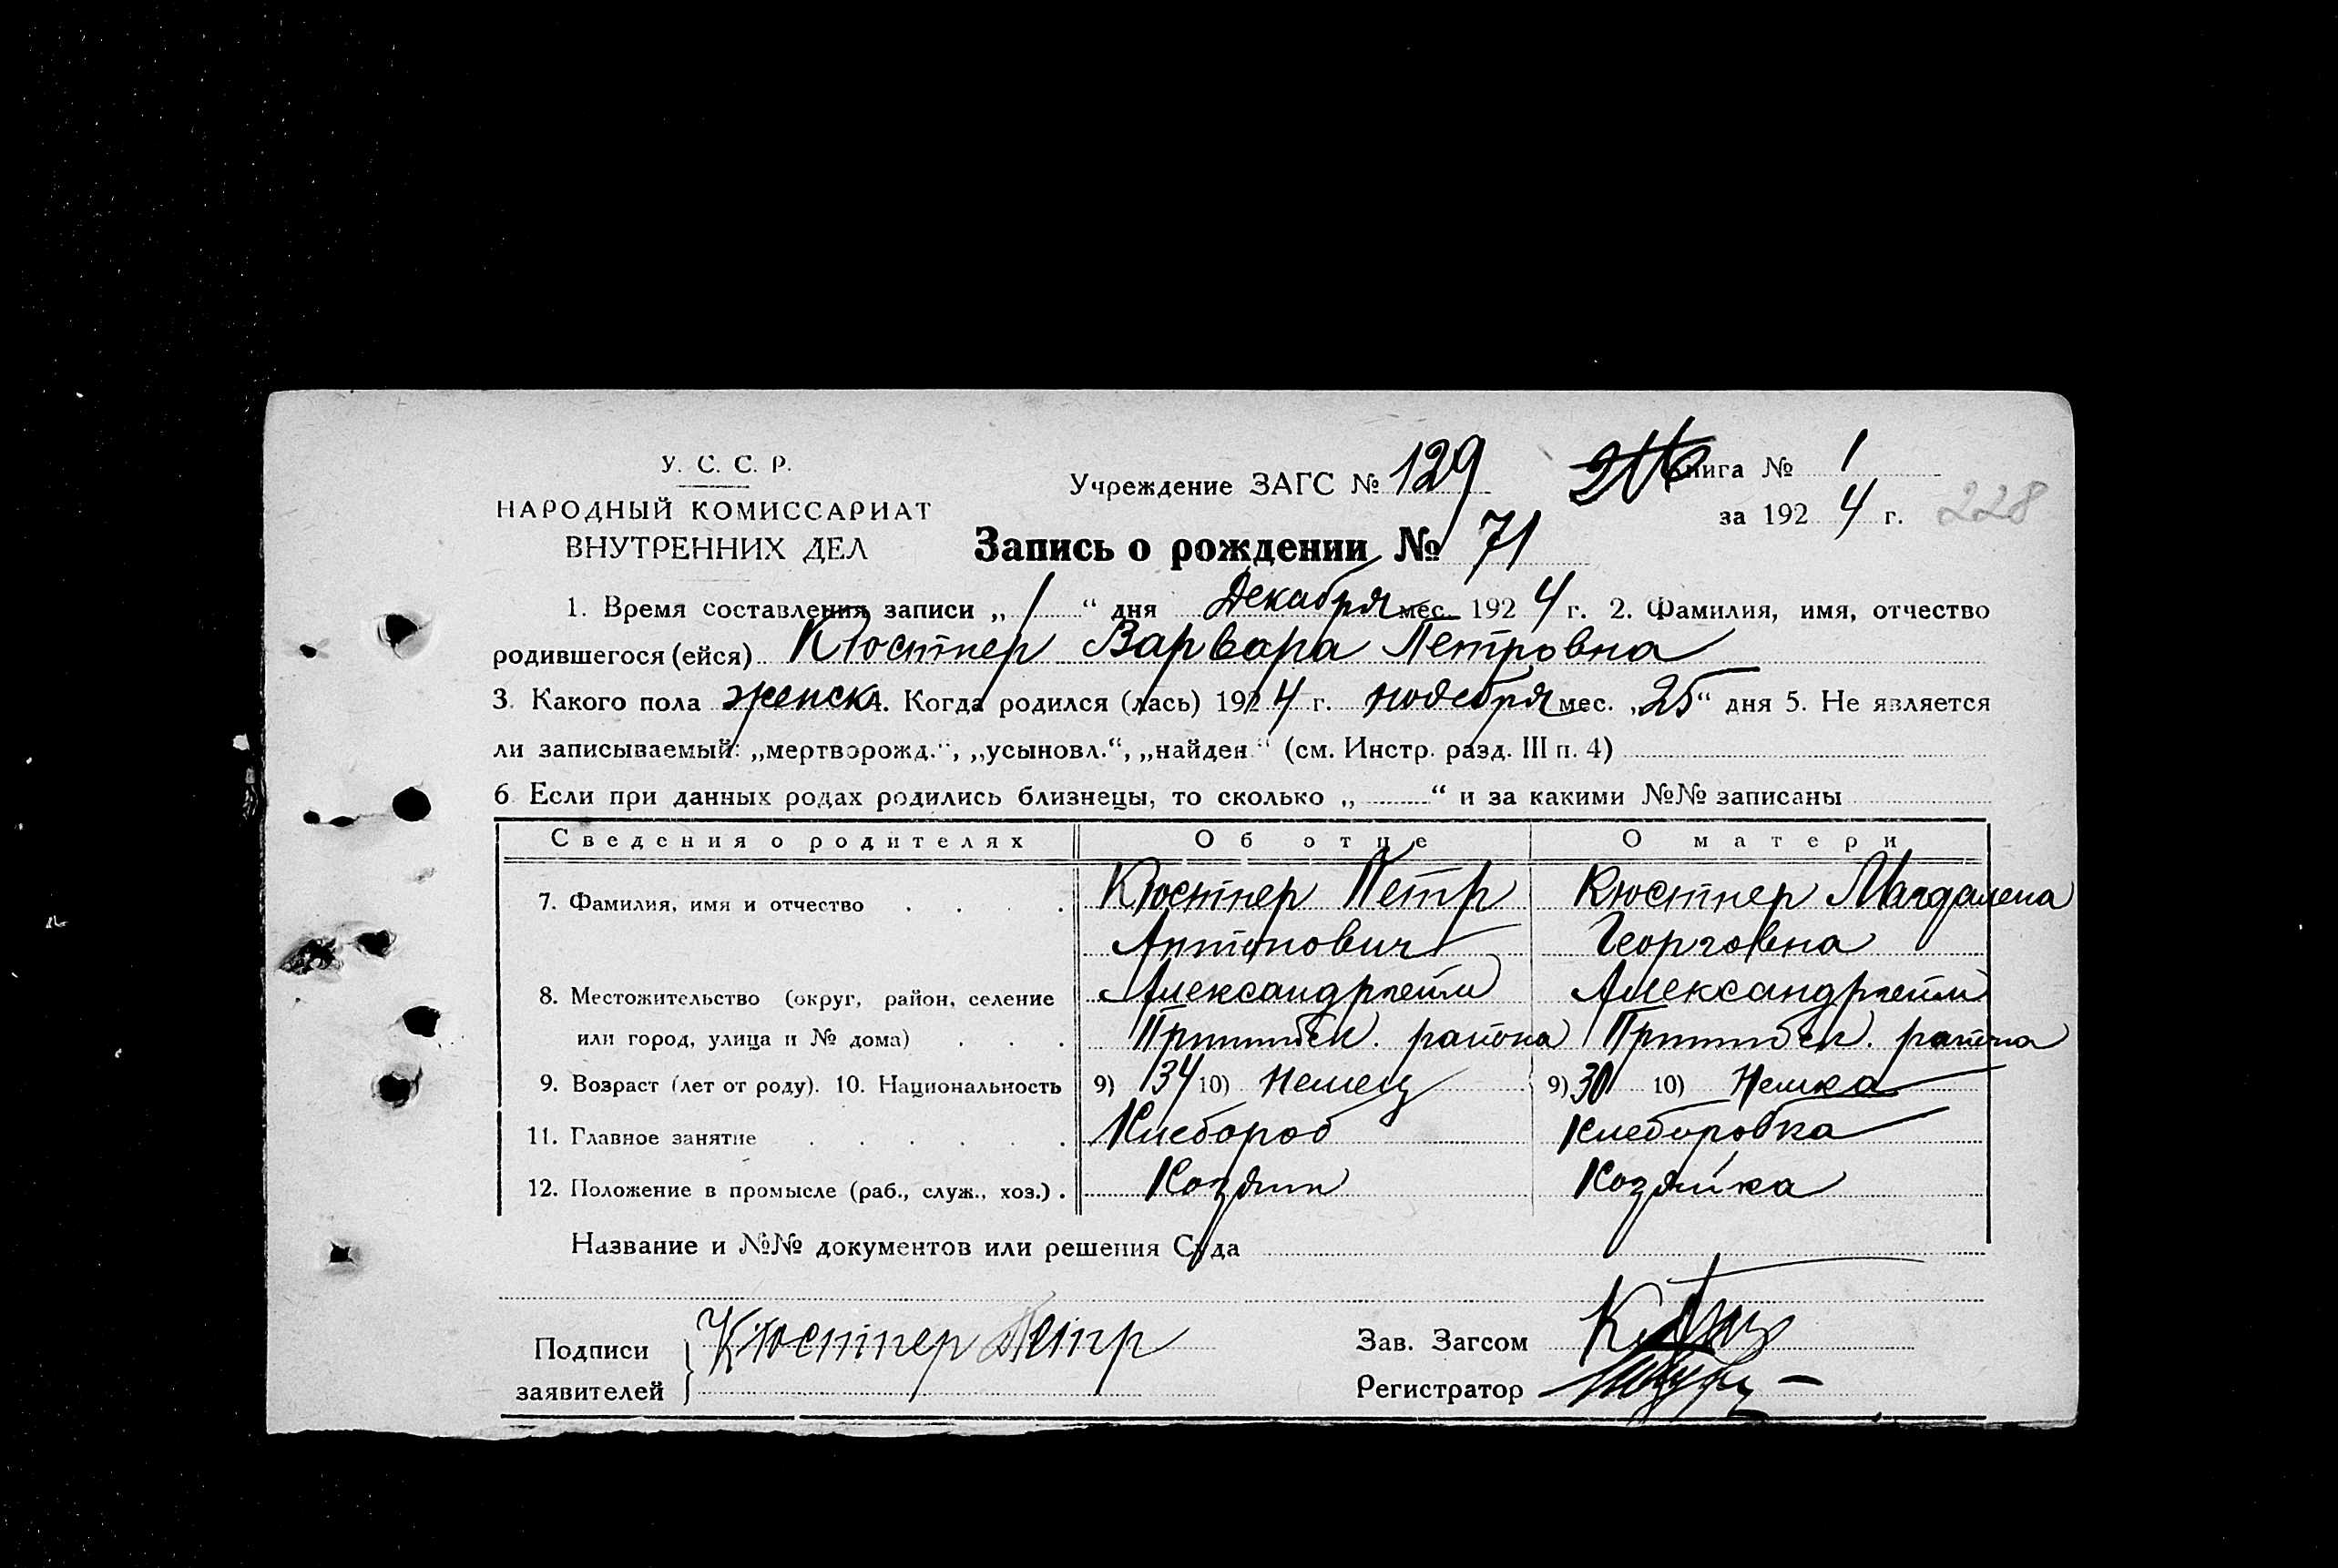 У. С. С. Р.
НАРОДНЫЙ КОМИССАРИАТ
ВНУТРЕННИХ ДЕЛ
Учреждение ЗАГС № 129
Книга № 1
за 1924 г. 228
Запись о рождении № 71
1. Время составления записи „1“ дня Декабря мес. 1924 г. 2. Фамилия, имя, отчество
родившегося (ейся) Кюстнер Варвара Петровна
3. Какого пола женск. 4. Когда родился (лась) 1924 г. ноября мес. „25“ дня 5. Не является
ли записываемый: „мертворожд.“, „усыновл.“, „найден“ (см. Инстр. разд. III п. 4)
6. Если при данных родах родились близнецы, то сколько „ “ и за какими №№ записаны
Сведения о родителях Об отце О матери
7. Фамилия, имя и отчество Кюстнер Петр Кюстнер Магдалена
Антонович Георговна
8. Местожительство (округ, район, селение Александргейм Александргейм
или город, улица и № дома) Пришибск. района Пришибск. района
9. Возраст (лет от роду). 10. Национальность 9) 34 10) Немец 9) 30 10) Немка
11. Главное занятие Хлебороб Хлеборобка
12. Положение в промысле (раб., служ., хоз.) Хозяин Хозяйка
Название и №№ документов или решения Суда
Подписи заявителей Кюстнер Петр
Зав. Загсом
Регистратор